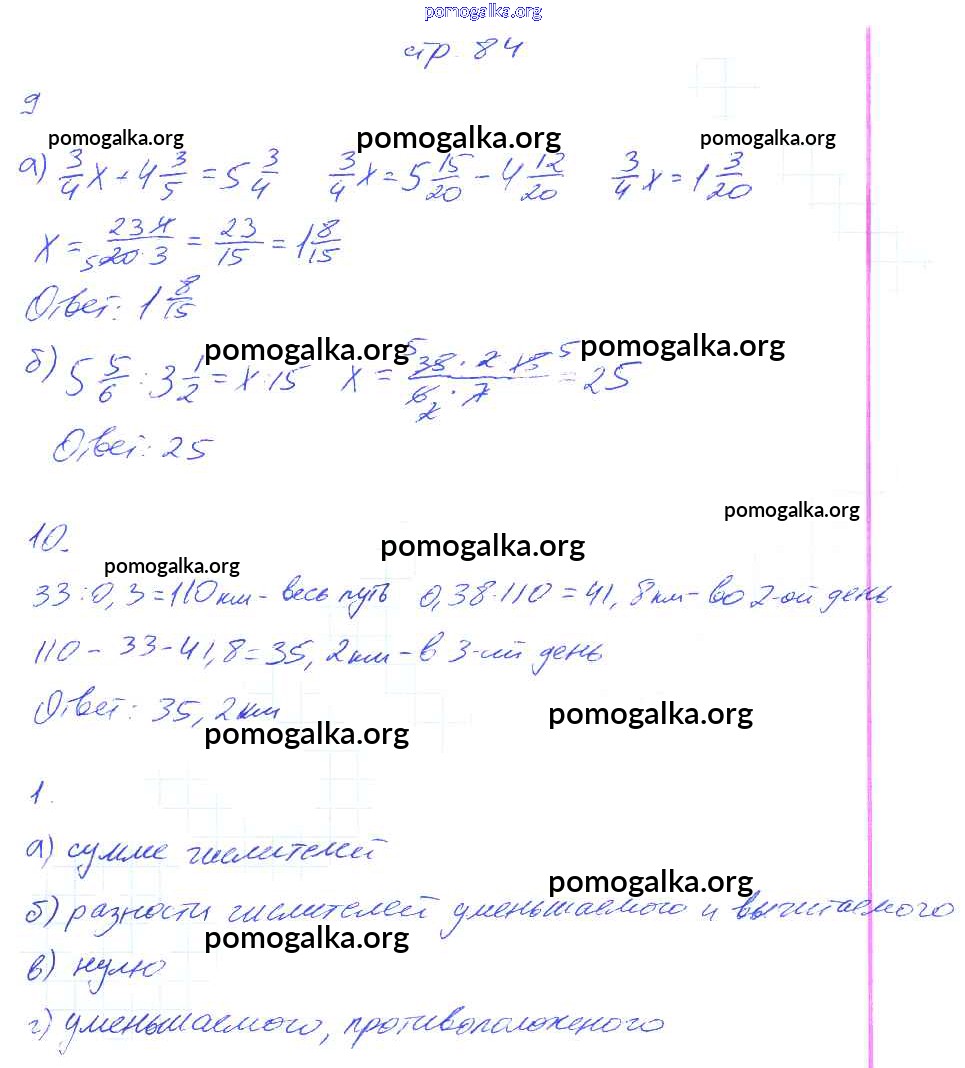 pomogalka.org
стр. 84
9
pomogalka.org pomogalka.org pomogalka.org
а) 3/4 x + 4 3/5 = 5 3/4 3/4 x = 5 15/20 - 4 12/20 3/4 x = 1 3/20
x = 23·4/5 20·3 = 23/15 = 1 8/15
Ответ: 1 8/15
pomogalka.org pomogalka.org
б) 5 5/6 : 3 1/2 = x : 15 x = 5 35 · 2 · 15 5/6 2 · 7 = 25
Ответ: 25
pomogalka.org
10.
pomogalka.org
pomogalka.org
33 : 0,3 = 110 км - весь путь 0,38·110 = 41,8 км - во 2-ой день
110 - 33 - 41,8 = 35,2 км - в 3-ий день
Ответ: 35,2 км
pomogalka.org
pomogalka.org
1.
а) сумме числителей
pomogalka.org
б) разности числителей уменьшаемого и вычитаемого
pomogalka.org
в) нулю
г) уменьшаемого, противоположеного